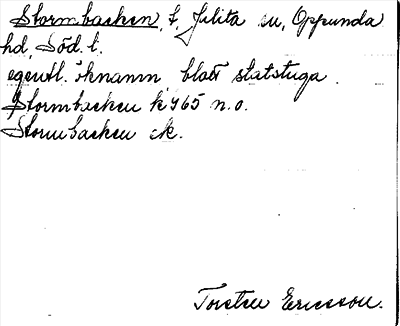 Stormbacken, t, Julita sn, Oppunda
hd, Söd. l.
egentl. öknamn blott statstuga.
Stormbacken k 465 n.o.
Stormbacken ek.
Torsten Ericsson.